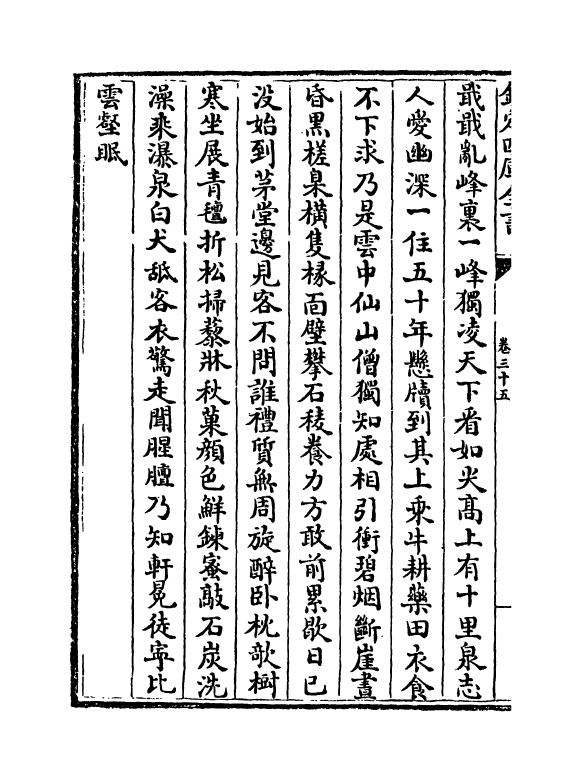 欽定四庫全書
卷三十五
戢戢亂峰裏一峰獨凌天下看如尖高上有十里泉志
人愛幽深一住五十年懸牘到其上乘牛耕藥田衣食
不下求乃是雲中仙山僧獨知處相引衝碧烟斷崖晝
昏黑槎臬橫隻椽面壁攀石稜養力方敢前累歇日已
沒始到茅堂邊見客不問誰禮質無周旋醉卧枕欹樹
寒坐展青氊折松掃藜牀秋菓顏色鮮鍊蜜敲石炭洗
澡乘瀑泉白犬舐客衣驚走聞腥膻乃知軒冕徒寧比
雲壑眠